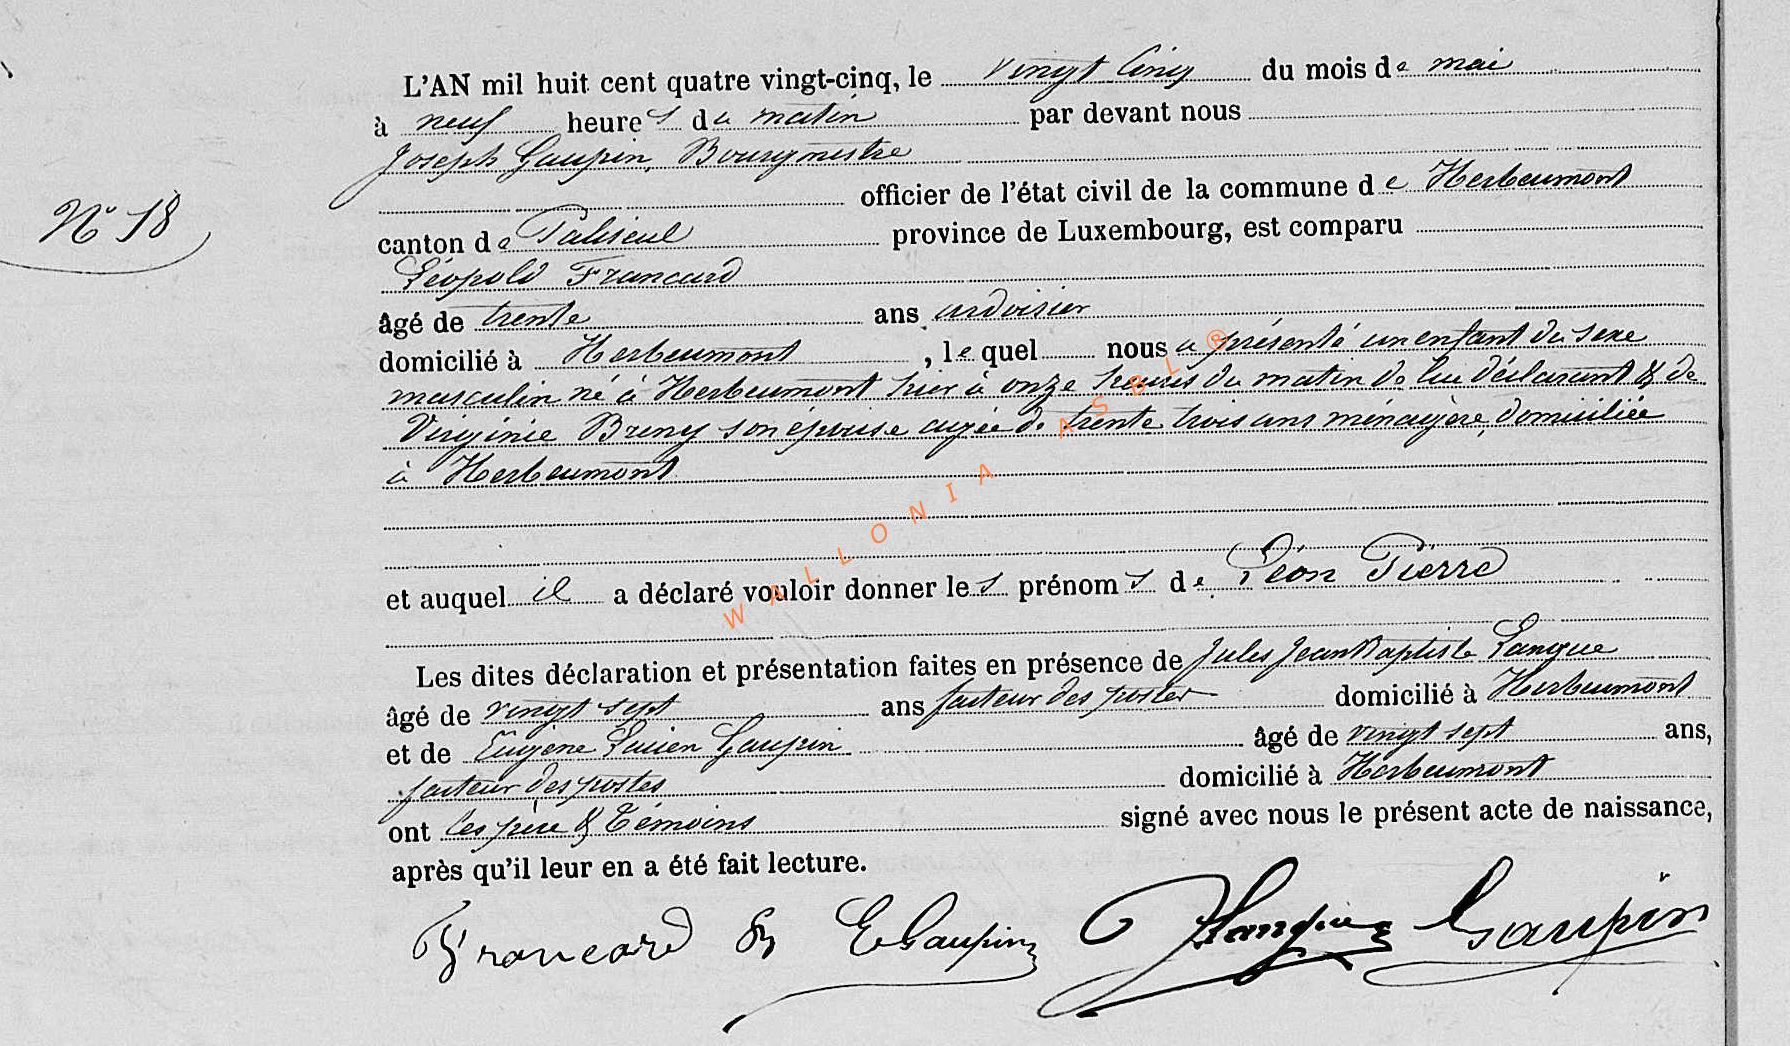 L'AN mil huit cent quatre vingt-cinq, le vingt cinq du mois de mai
à neuf heures du matin par devant nous
Joseph Gaupin, Bourgmestre
officier de l'état civil de la commune de Herbeumont
N° 18
canton de Paliseul province de Luxembourg, est comparu
Léopold Francard
âgé de trente ans ardoisier
domicilié à Herbeumont, lequel nous a présenté un enfant du sexe
masculin né à Herbeumont hier à onze heures du matin de lui déclarant & de
Virginie Breny son épouse agée de trente trois ans ménagère, domiciliée
à Herbeumont
et auquel il a déclaré vouloir donner les prénoms de Léon Pierre
Les dites déclaration et présentation faites en présence de Jules Jean Baptiste Langue
âgé de vingt sept ans facteur des postes domicilié à Herbeumont
et de Eugène Lucien Gaupin âgé de vingt sept ans,
facteur des postes domicilié à Herbeumont
ont les père & témoins signé avec nous le présent acte de naissance,
après qu'il leur en a été fait lecture.
Francard E Gaupin JLangue Gaupin
WALLONIA ASBL ®